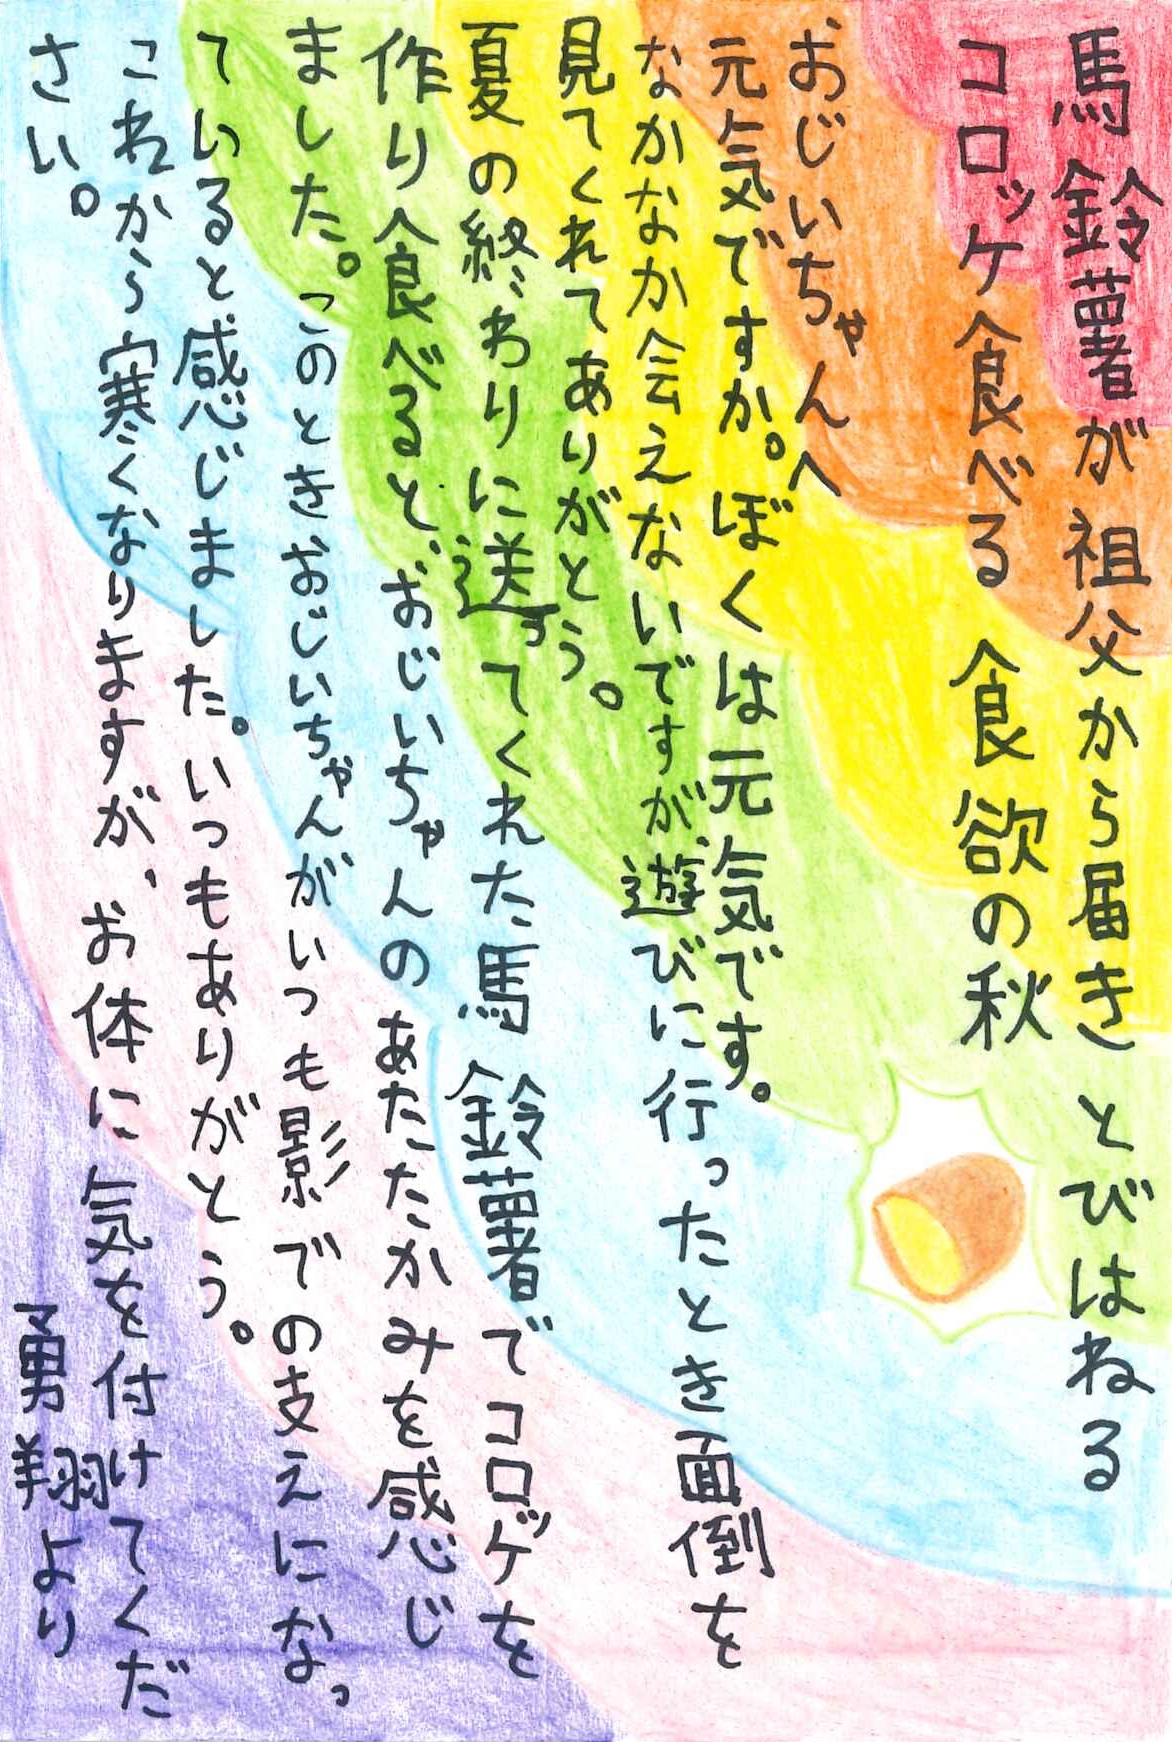 馬鈴薯が祖父から届きとびはねる
コロッケ食べる食欲の秋
おじいちゃんへ
元気ですか。ぼくは元気です。
なかなか会えないですが、遊びに行ったとき面倒を
見てくれてありがとう。
夏の終わりに送ってくれた馬鈴薯でコロッケを
作り食べると、おじいちゃんのあたたかみを感じ
ました。このときおじいちゃんがいつも影での支えになっ
ていると感じました。いつもありがとう。
これから寒くなりますが、お体に気を付けてくだ
さい。
勇翔より